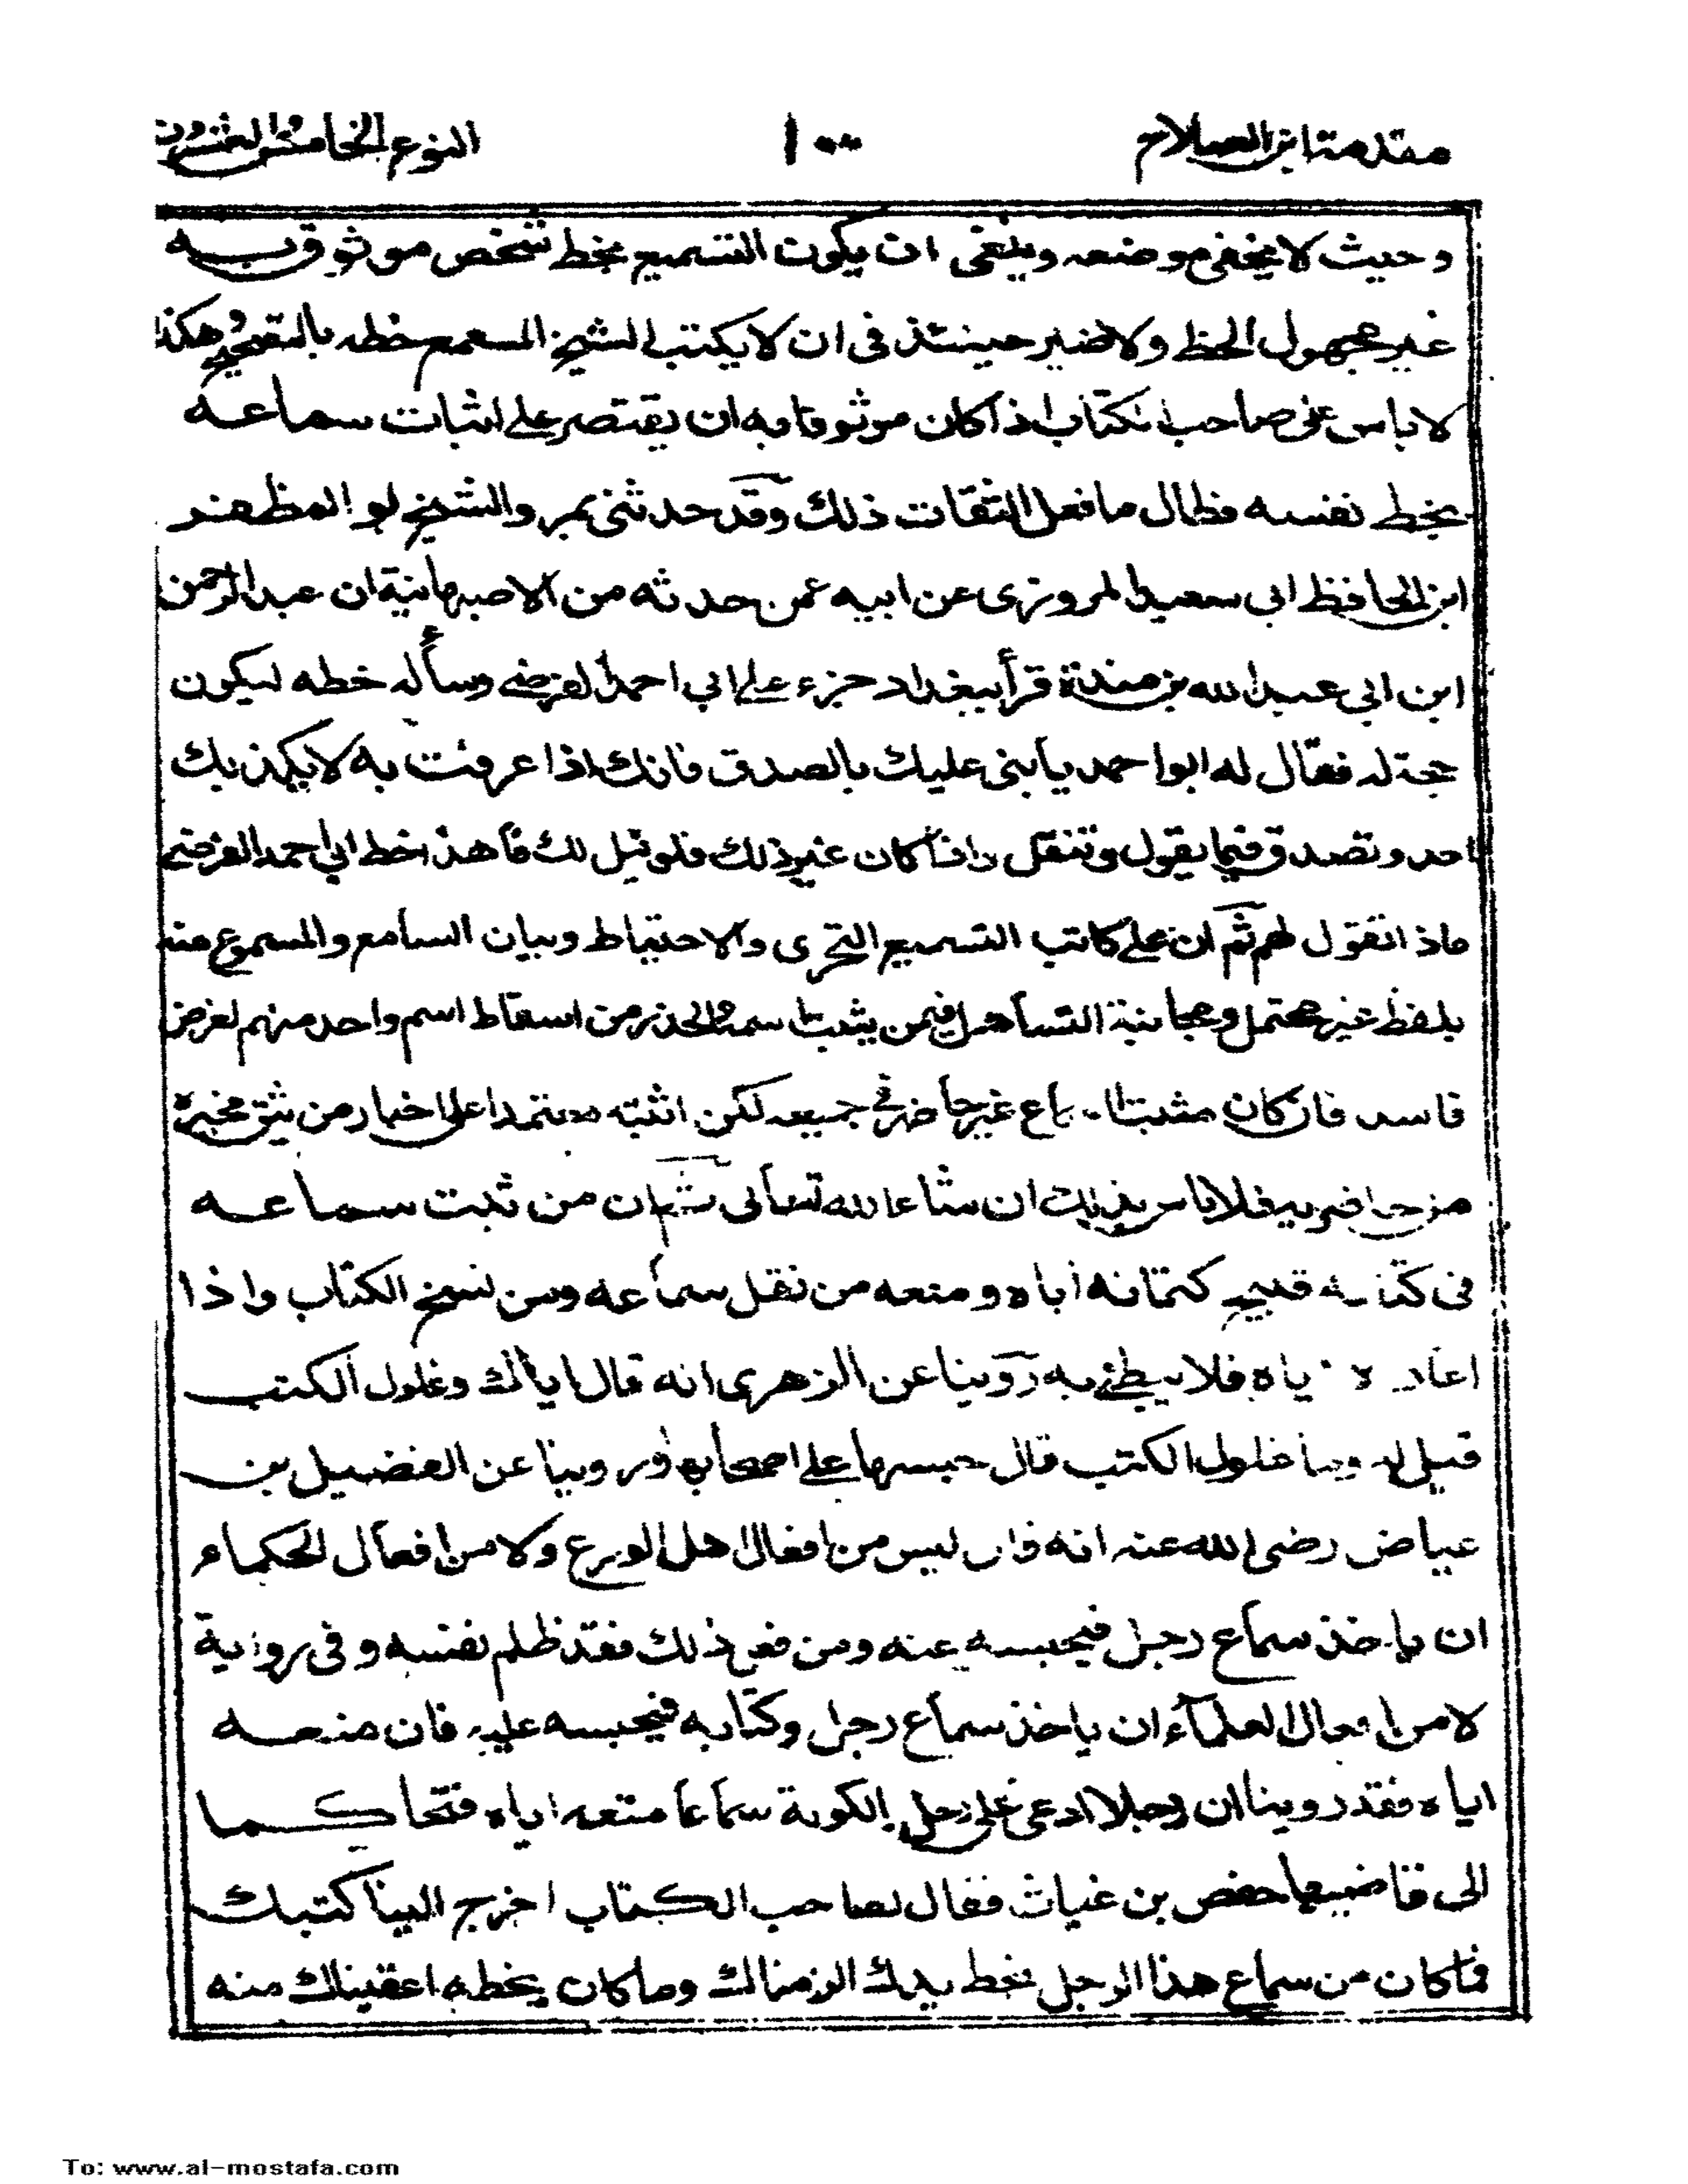 مقدمة ابن الصلاح
١٠٠
النوع الخامس والعشرون
وحيث لا يخفى موضعه وينبغى ان يكون التسميع بخط شخص موثوق به
غير مجهول الخط ولا ضير حينئذ فى ان لا يكتب الشيخ المسمع خطه بالتصحيح وهكذا
لا باس على صاحب الكتاب اذا كان موثوقا به ان يقتصر على اثبات سماعه
بخط نفسه فطال ما فعل الثقات ذلك وقد حدثنى بمرو الشيخ ابو المظفر
ابن الحافظ ابى سعيد المروزى عن ابيه عمن حدثه من الاصبهانية ان عبد الرحمن
ابن ابى عبد الله بن مندة قرأ ببغداد جزء على ابى احمد الفرضى وسأله خطه ليكون
حجة له فقال له ابو احمد يا بنى عليك بالصدق فانك اذا عرفت به لا يكذبك
احد وتصدق فيما يقول وتنقل واذا كان غير ذلك فلو قيل لك ما هذا خط ابى احمد الفرضى
ماذا تقول لهم ثم ان على كاتب التسميع التحرى والاحتياط وبيان السامع والمسموع منه
بلفظ غير محتمل ومجانبة التساهل فيمن يثبت اسمه والحذر من اسقاط اسم واحد منهم لغرض
فاسد فان كان مثبت السماع غير حاضر فى جميعه لكن اثبته معتمدا على اخبار من يثق بخبره
من حاضريه فلا باس بذلك ان شاء الله تعالى ثم ان من ثبت سماعه
فى كتابه قبيح كتمانه اياه ومنعه من نقل سماعه ومن نسخ الكتاب واذا
اعاره اياه فلا يبطئ به روينا عن الزهرى انه قال اياك وغلول الكتب
قيل له وما غلول الكتب قال حبسها على اصحابها وروينا عن الفضيل بن
عياض رضى الله عنه انه قال ليس من افعال اهل الورع ولا من افعال الحكماء
ان ياخذ سماع رجل فيحبسه عنه ومن فعل ذلك فقد ظلم نفسه وفى رواية
لا من افعال العلماء ان ياخذ سماع رجل وكتابه فيحبسه عليه فان منعه
اياه فقد روينا ان رجلا ادعى على رجل بالكوفة سماعا منعه اياه فتحاكما
الى قاضيها حفص بن غياث فقال لصاحب الكتاب اخرج الينا كتبك
فما كان من سماع هذا الرجل بخط يدك الزمناك وما كان بخطه اعفيناك منه
To: www.al-mostafa.com